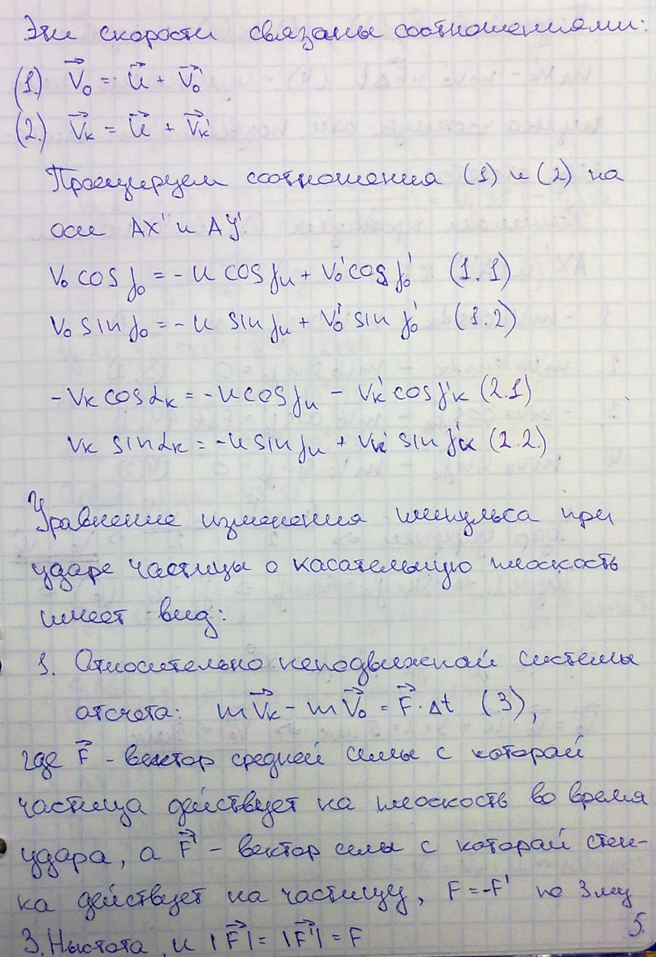 Эти скорости связаны соотношениями:
(1.) V⃗₀ = u⃗ + V⃗₀'
(2.) V⃗к = u⃗ + V⃗к'
Проецируем соотношения (1) и (2) на
оси AX' и AY'
V₀ cos γ₀ = - u cos γu + V₀' cos γ₀' (1.1)
V₀ sin γ₀ = - u sin γu + V₀' sin γ₀' (1.2)
-Vк cos αк = -u cos γu - Vк' cos γ'к (2.1)
Vк sin αк = -u sin γu + Vк' sin γ'к (2.2.)
Уравнение изменения импульса при
ударе частицы о касательную плоскость
имеет вид:
1. Относительно неподвижной системы
отсчета: mV⃗к - mV⃗₀ = F⃗·Δt (3),
где F⃗ - вектор средней силы с которой
частица действует на плоскость во время
удара, а F⃗' - вектор силы с которой стен-
ка действует на частицу, F=-F' по 3му
З.Ньютона, и |F⃗| = |F⃗'| = F
5.